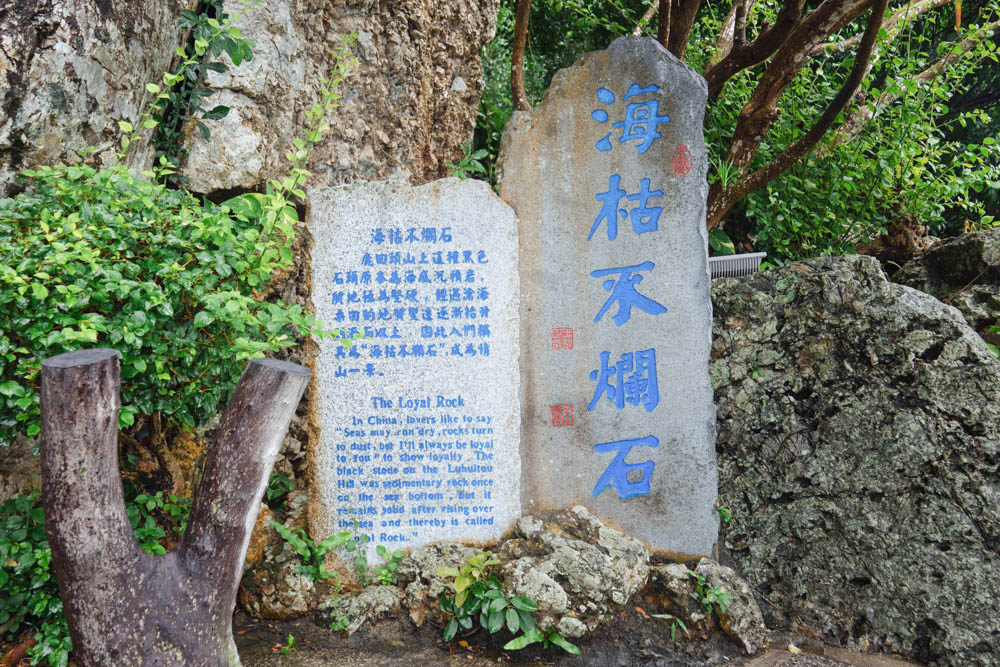 海枯不爛石
海枯不爛石
鹿回頭山上這種黑色
石頭原本為海底沉積岩，
質地極為堅硬，經過滄海
桑田的地質變遷逐漸抬升
石以上，因此人們稱
其為"海枯不爛石",成為情
山一景。
The Loyal Rock
In China, lovers like to say
"Seas may run dry, rocks turn
to dust, but I'll always be loyal
to you" to show loyalty. The
black stone on the Luhuitou
Hill was sedimentary rock once
on the sea bottom, But it
remains solid after rising over
the sea and thereby is called
Rock.."